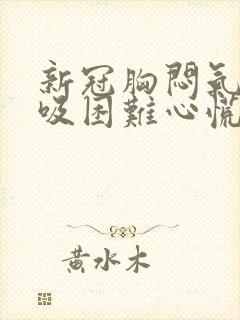 新冠胸悶氣
吸困難心慌
黃水木